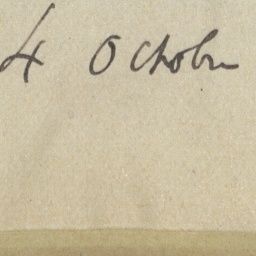 4 October